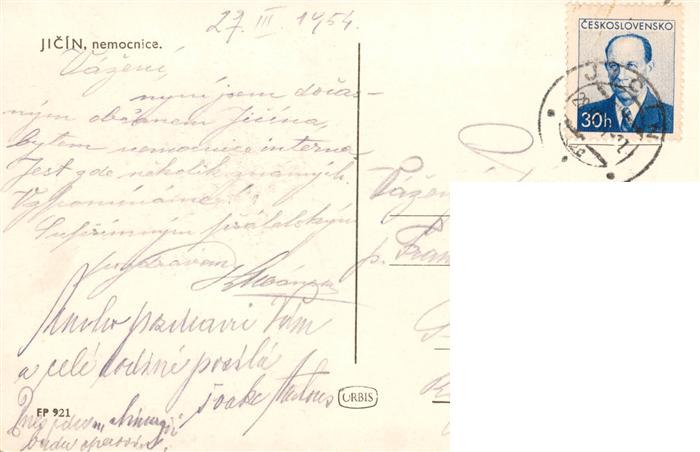 27. III. 1954.
JIČÍN, nemocnice.
Vážení,
nyní jsem dočas-
ným občanem Jičína,
bytem nemocnice interna
Jest zde několik známých.
Vzpomínáme!
S upřímným přátelským
pozdravem
Mnoho pozdravů Vám
a celé rodině posílá
Dnes jdu na chirurgii
budu operován.
EP 921
ORBIS
ČESKOSLOVENSKO
30h
JIČÍN
Vážený
p. Fran